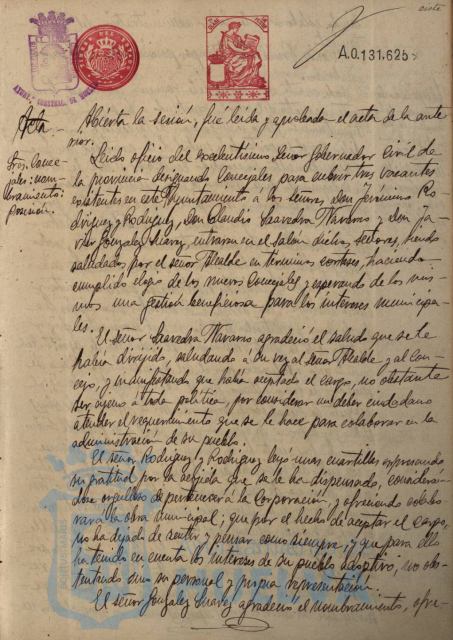 siete
A.0.131.625
AYUNT. CONSTNAL. DE
Acta.-
Sres. Conce-
jales: nom-
bramiento:
Posesión.
Abierta la sesión, fue leida y aprobada el acta de la ante-
rior.
Leido oficio del Excelentísimo Señor Gobernador Civil de
la provincia designando Concejales para cubrir tres vacantes
existentes en este Ayuntamiento a los Señores, Don Jerónimo Ro-
driguez y Rodriguez, Don Claudio Saavedra Navarro y Don Ja-
vier Gonzalez Suarez, entraron en el salón dichos señores, siendo
saludados por el señor Alcalde en términos corteses, haciendo
cumplido elogio de los nuevos Concejales y esperando de los mis-
mos una gestión beneficiosa para los intereses municipa-
les.
El Señor Saavedra Navarro agradeció el saludo que se le
había dirigido, saludando a su vez al Señor Alcalde y al Con-
cejo, y manifestando que había aceptado el cargo, no obstante
ser ajeno a toda política, por considerar un deber ciudadano
atender el requerimiento que se le hace para colaborar en la
administración de su pueblo.
El señor Rodriguez y Rodriguez leyó unas cuartillas expresando
su gratitud por la acogida que se le ha dispensado, considerán-
dose orgulloso de pertenecer a la Corporación, y ofreciendo colabo-
rar a la obra municipal; que por el hecho de aceptar el cargo,
no ha dejado de sentir y pensar como siempre, y que para ello
ha tenido en cuenta los intereses de su pueblo adoptivo, no os-
tentando sino su personal y propia representación.
El señor Gonzalez Suarez agradeció el nombramiento, ofre-